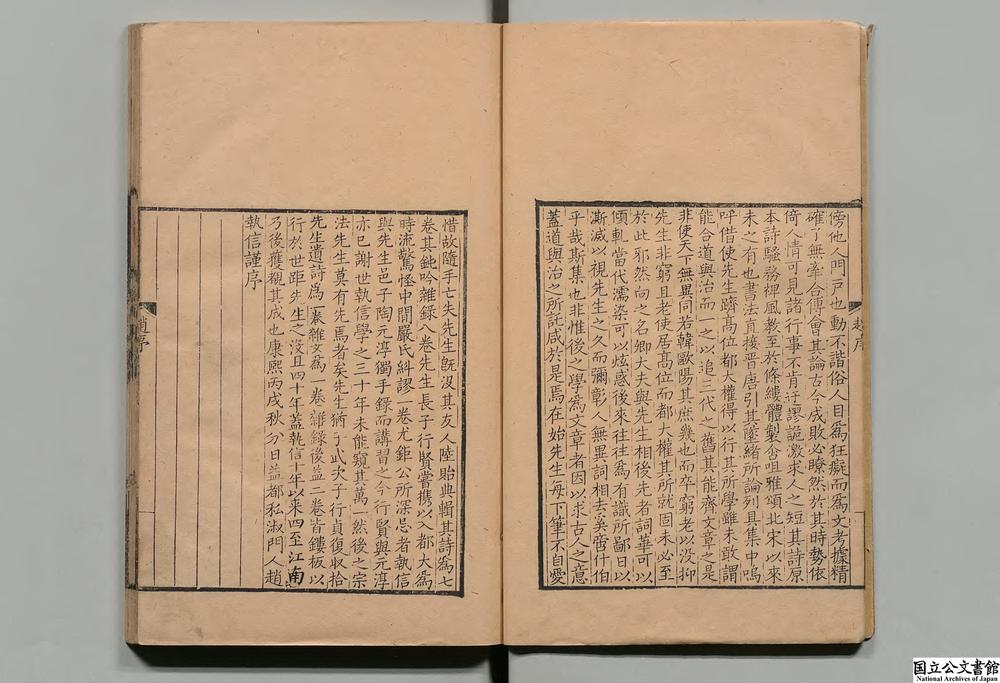 傍他人門戶也動不諧俗人目爲狂癡而爲文考據精
確了無牽合傅會其論古今成敗必瞭然於其時勢依
倚人情可見諸行事不肯迂謬詭激求人之短其詩原
本詩騷務裨風教至於條縷體製含咀雅頌北宋以來
未之有也書法直接晉唐引其墜緒所論列具集中嗚
呼借使先生躋高位都大權得以行其所學雖未敢謂
能合道與治而一之以追三代之舊其能齊文章之是
非使天下無異同若韓歐陽其庶幾也而卒窮老以没抑
先生非窮且老使居高位而都大權其所就固未必至
於此邪然向之名卿大夫與先生相後先者詞華可以
傾軋當代濡染可以炫惑後來往往爲有識所鄙日以
漸滅以視先生之久而彌彰人無異詞相去奚啻什伯
乎哉斯集也非惟後之學爲文章者因以求古人之意
蓋道與治之所託咸於是焉在始先生每下筆不自愛
趙序
惜故隨手亡失先生旣没其友人陸貽典輯其詩爲七
卷其鈍吟雜錄八卷先生長子行賢嘗携以入都大爲
時流驚怪中間嚴氏糾謬一卷尤鉅公所深忌者執信
與先生邑子陶元淳獨手錄而講習之今行賢與元淳
亦已謝世執信學之三十年未能窺其萬一然後之宗
法先生莫有先焉者矣先生猶子武次子行貞復收拾
先生遺詩爲一袠雜文爲一卷雜錄後益二卷皆鏤板以
行於世距先生之没且四十年蓋執信十年以來四至江南
乃後獲觀其成也康熙丙戌秋分日益都私淑門人趙
執信謹序
趙序
国立公文書館
National Archives of Japan